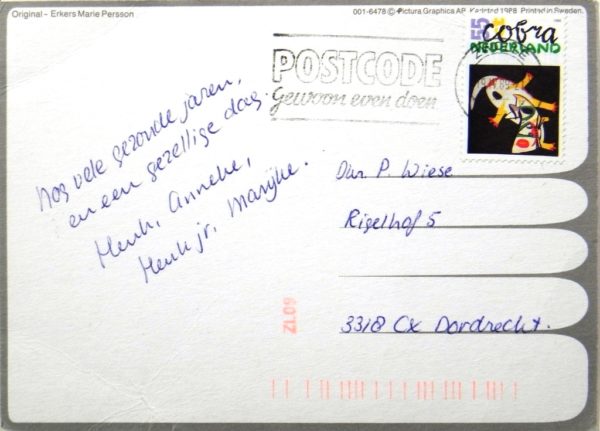 Original - Erkers Marie Persson
001-6478 © Picture Graphica AB, Karlstad 1988 Printed in Sweden.
55
cobra
NEDERLAND
POSTCODE
gewoon even doen
Nog vele gezonde jaren,
en een gezellige dag.
Henk, Anneke,
Henk jr, Marijke.
Dhr. P. Wiese
Rigelhof 5
3318 CX Dordrecht.
ZL09